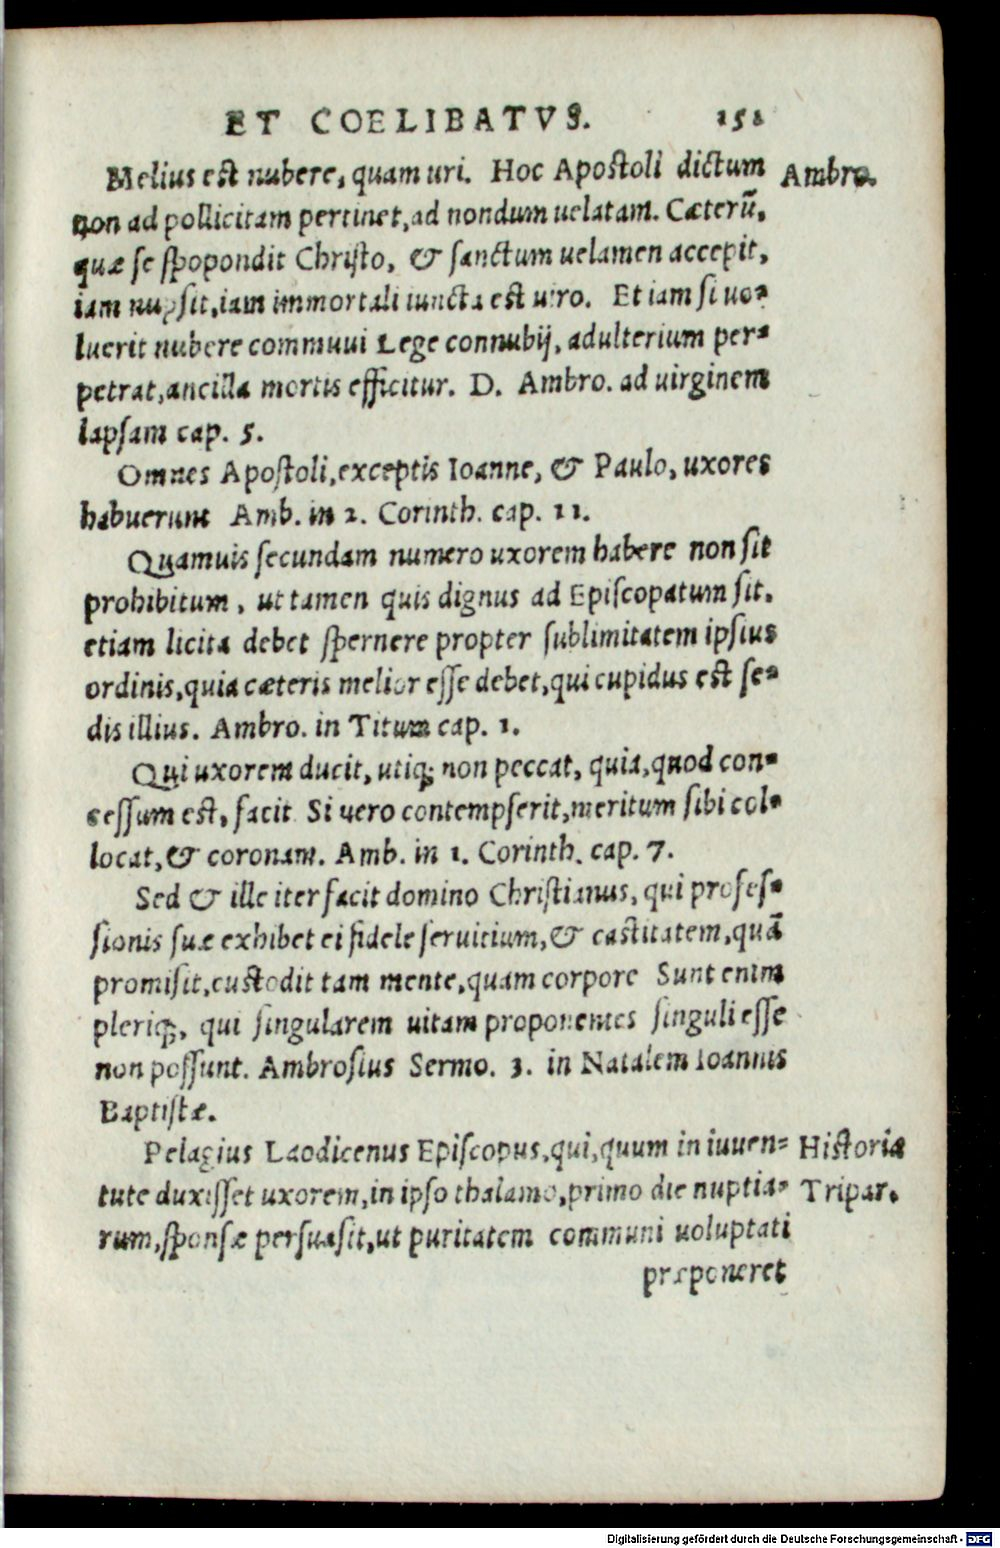 ET COELIBATVS. 151
Melius est nubere, quam uri. Hoc Apostoli dictum Ambro.
non ad pollicitam pertinet, ad nondum uelatam. Cæterũ,
quæ se spopondit Christo, & sanctum uelamen accepit,
iam nupsit, iam immortali iuncta est uiro. Etiam si uo=
luerit nubere commuui Lege connubij, adulterium per=
petrat, ancilla mortis efficitur. D. Ambro. ad uirginem
lapsam cap. 5.
Omnes Apostoli, exceptis Ioanne, & Paulo, uxores
habuerunt Amb. in 2. Corinth. cap. 11.
Quamuis secundam numero uxorem habere non sit
prohibitum, ut tamen quis dignus ad Episcopatum sit.
etiam licita debet spernere propter sublimitatem ipsius
ordinis, quia cæteris melior esse debet, qui cupidus est se=
dis illius. Ambro. in Titum cap. 1.
Qui uxorem ducit, utiq; non peccat, quia, quod con=
cessum est, facit Si uero contempserit, meritum sibi col=
locat, & coronam. Amb. in 1. Corinth. cap. 7.
Sed & ille iter facit domino Christianus, qui profes=
sionis suæ exhibet ei fidele seruitium, & castitatem, quã
promisit, custodit tam mente, quam corpore Sunt enim
pleriq;, qui singularem uitam proponentes singuli esse
non possunt. Ambrosius Sermo. 3. in Natalem Ioannis
Baptistæ.
Pelagius Laodicenus Episcopus, qui, quum in iuuen= Historia
tute duxisset uxorem, in ipso thalamo, primo die nuptia= Tripar.
rum, sponsæ persuasit, ut puritatem communi uoluptati
præponeret
Digitalisierung gefördert durch die Deutsche Forschungsgemeinschaft - DFG